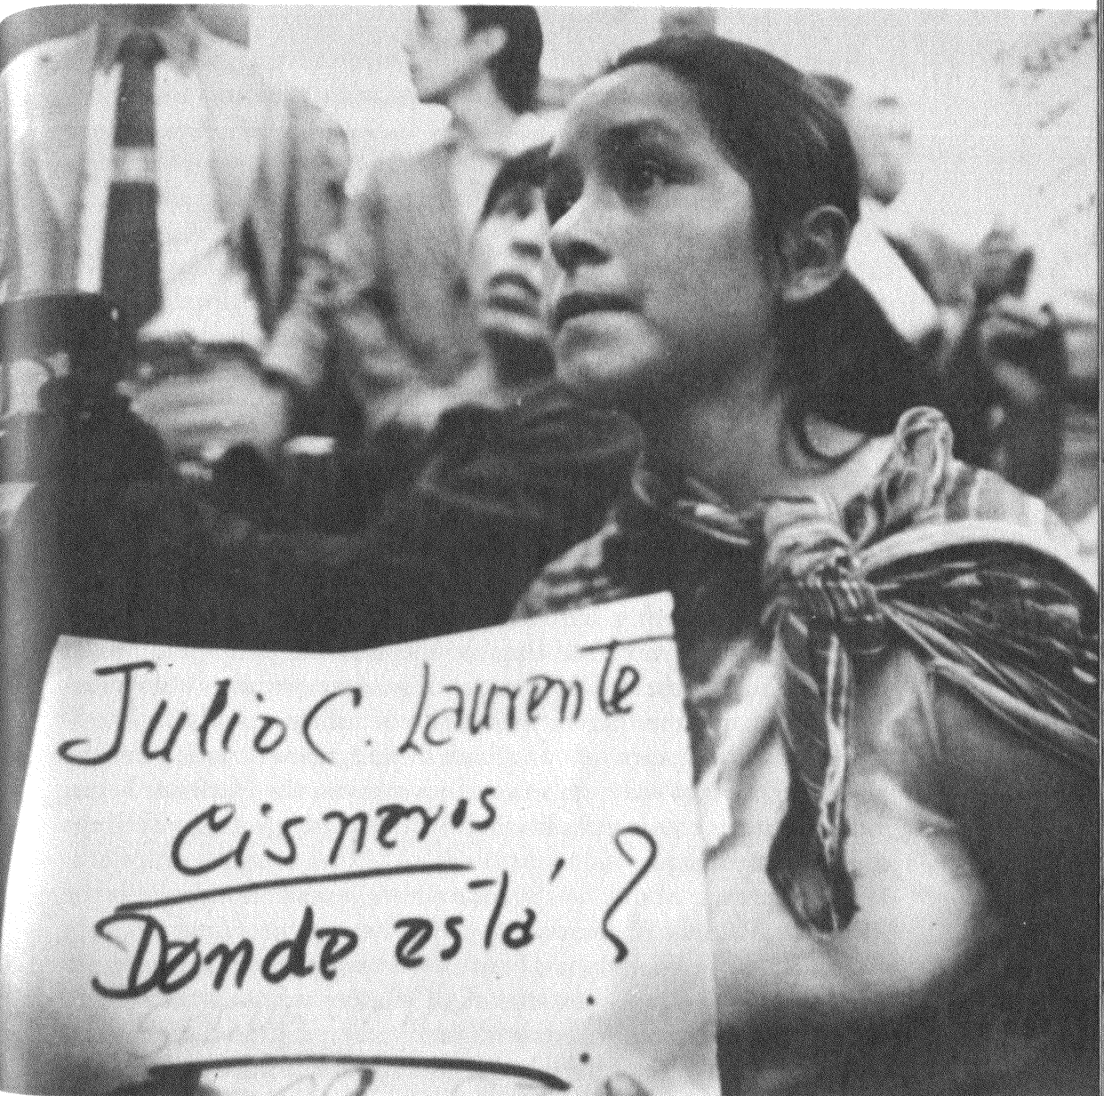 Julio C. Laurente
Cisneros
Donde está?